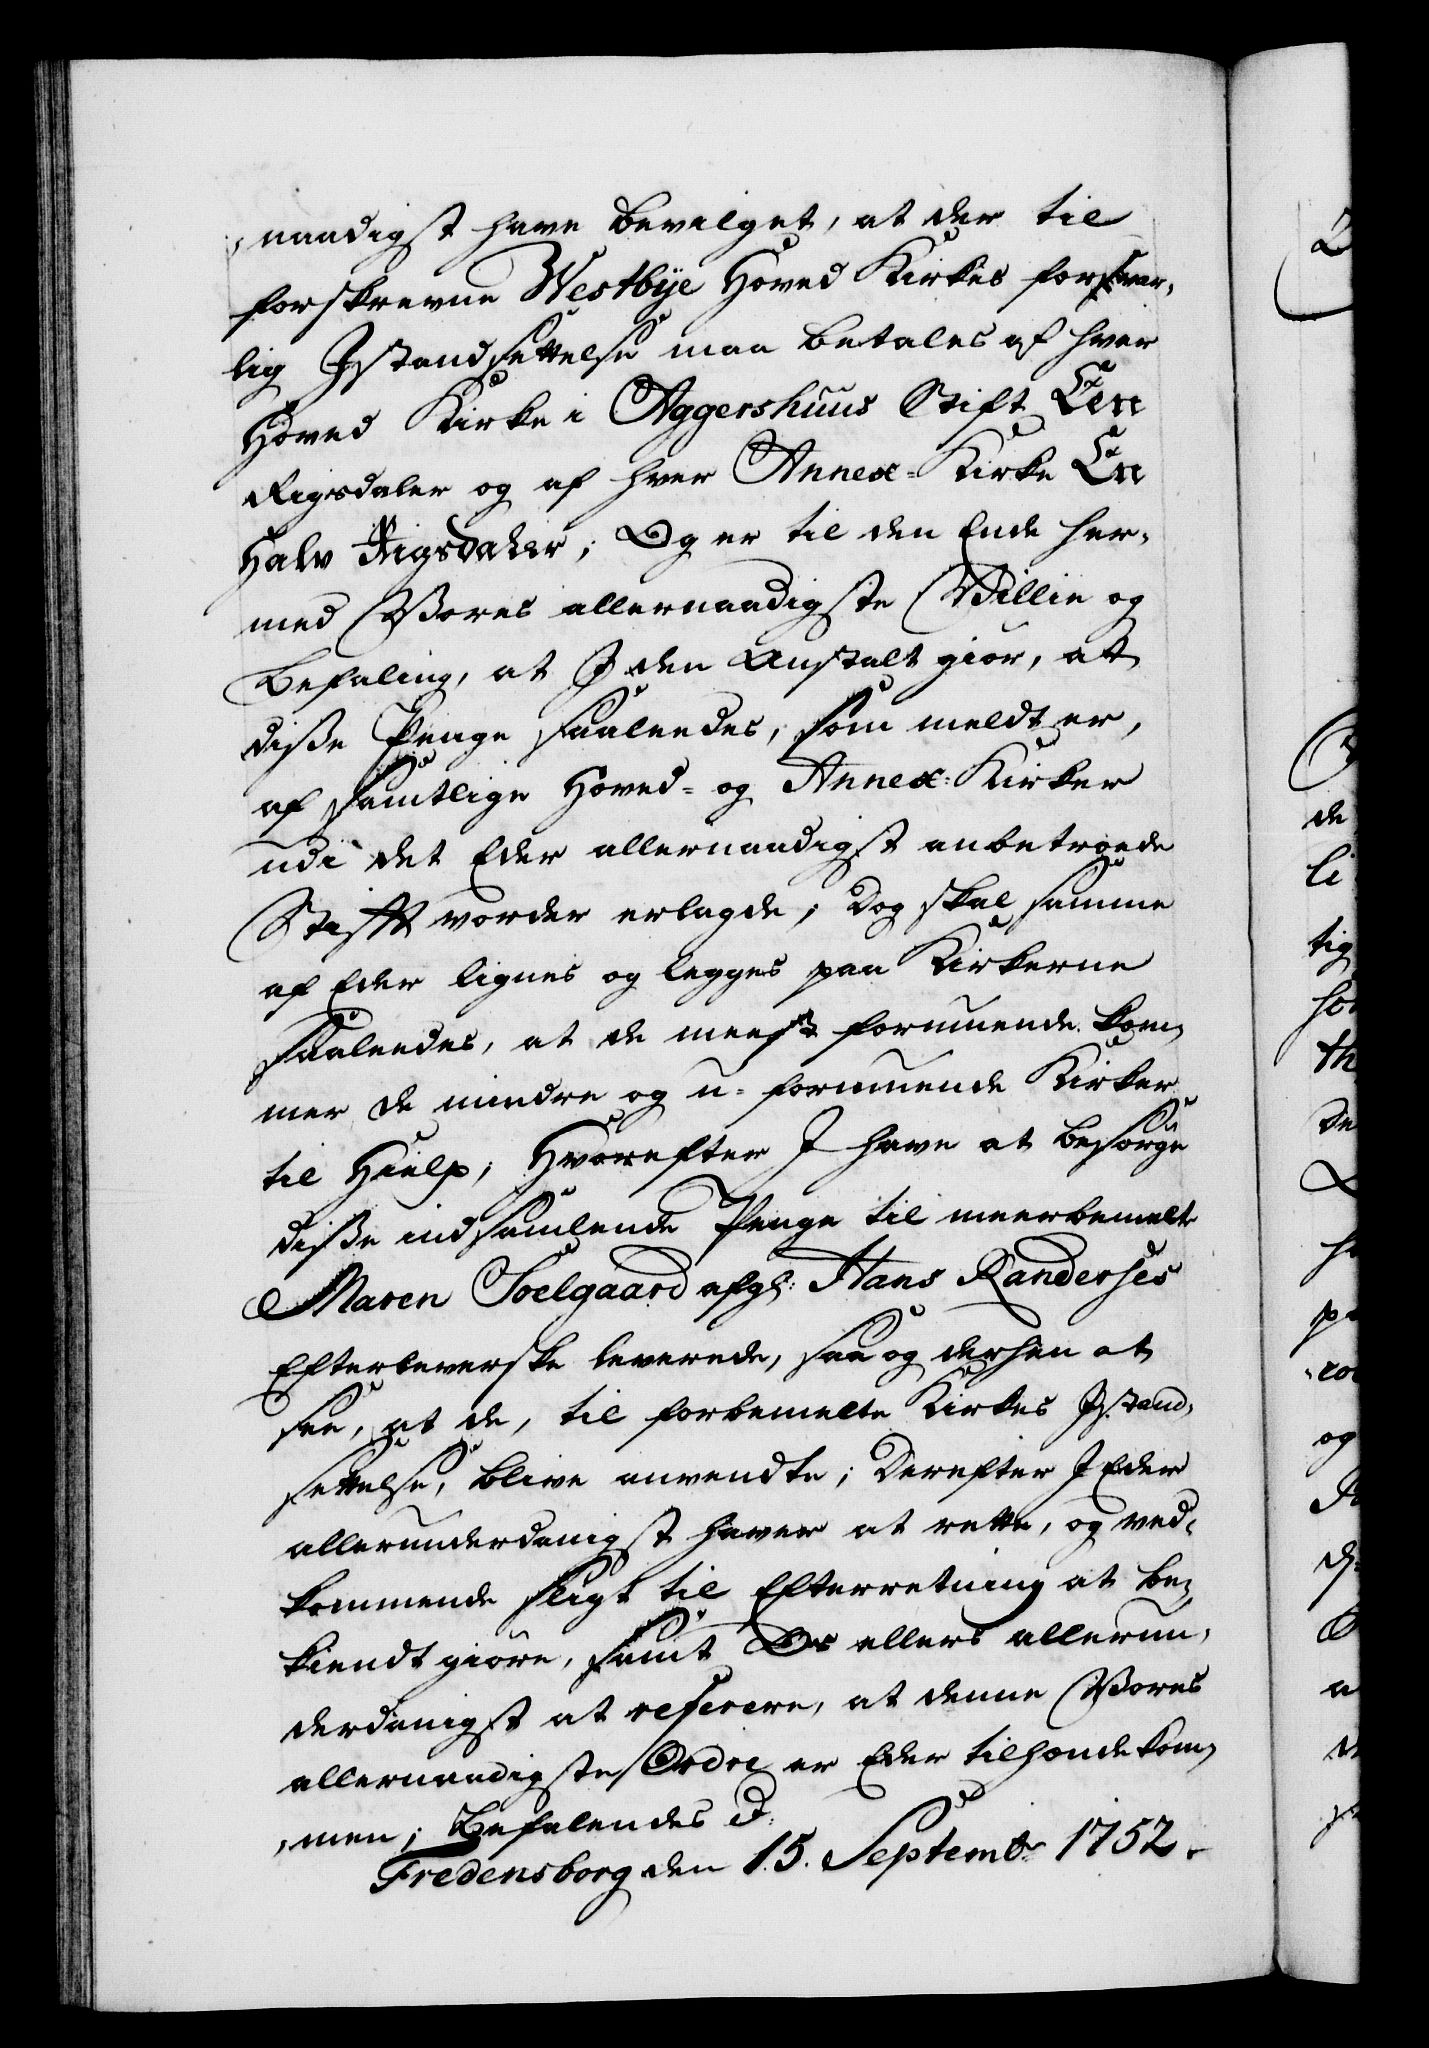 ,naadigst have bevilget, at der til
forskrevne Westbÿe Hoved Kirkes forsvar,
lig Istandsettelse maa betales af hver
Hoved Kirke i Aggershuus Stift Een
Rigsdaler og af hver Annex-Kirke En
Halv Rigsdaler; Og er til den Ende her,
med Vores allernaadigste Villie og
Befaling, at I den Anstalt giør, at
disse Penge saaleedes, som meldt er,
af samtlige Hoved- og Annex-Kirker
udi det Eder allernaadigst anbetroede
Stift vorder erlagde; Dog skal samme
af Eder lignes og legges paa Kirkerne
saaleedes, at de meest formuende kom,
mer de mindre og u-formuende Kirker
til Hielp; Hvorefter I have at besørge
disse indsamlende Penge til meerbemelte
Maren Soelgaard afgl: Hans Randerses
Efterleverske leverede, saa og derhen at
see, at de, til forbemelte Kirkes Istand,
settelse, blive anvendte; Derefter I Eder
allerunderdanigst haver at rette, og ved,
kommende sligt til Efterretning at be,
kiendt giøre, samt Os allers allerun,
derdanigst at referere, at denne Vores
allernaadigste Ordre er Eder tilhænde kom,
,men; Befalendes d:
Fredensborg den 15. Septembr 1752.